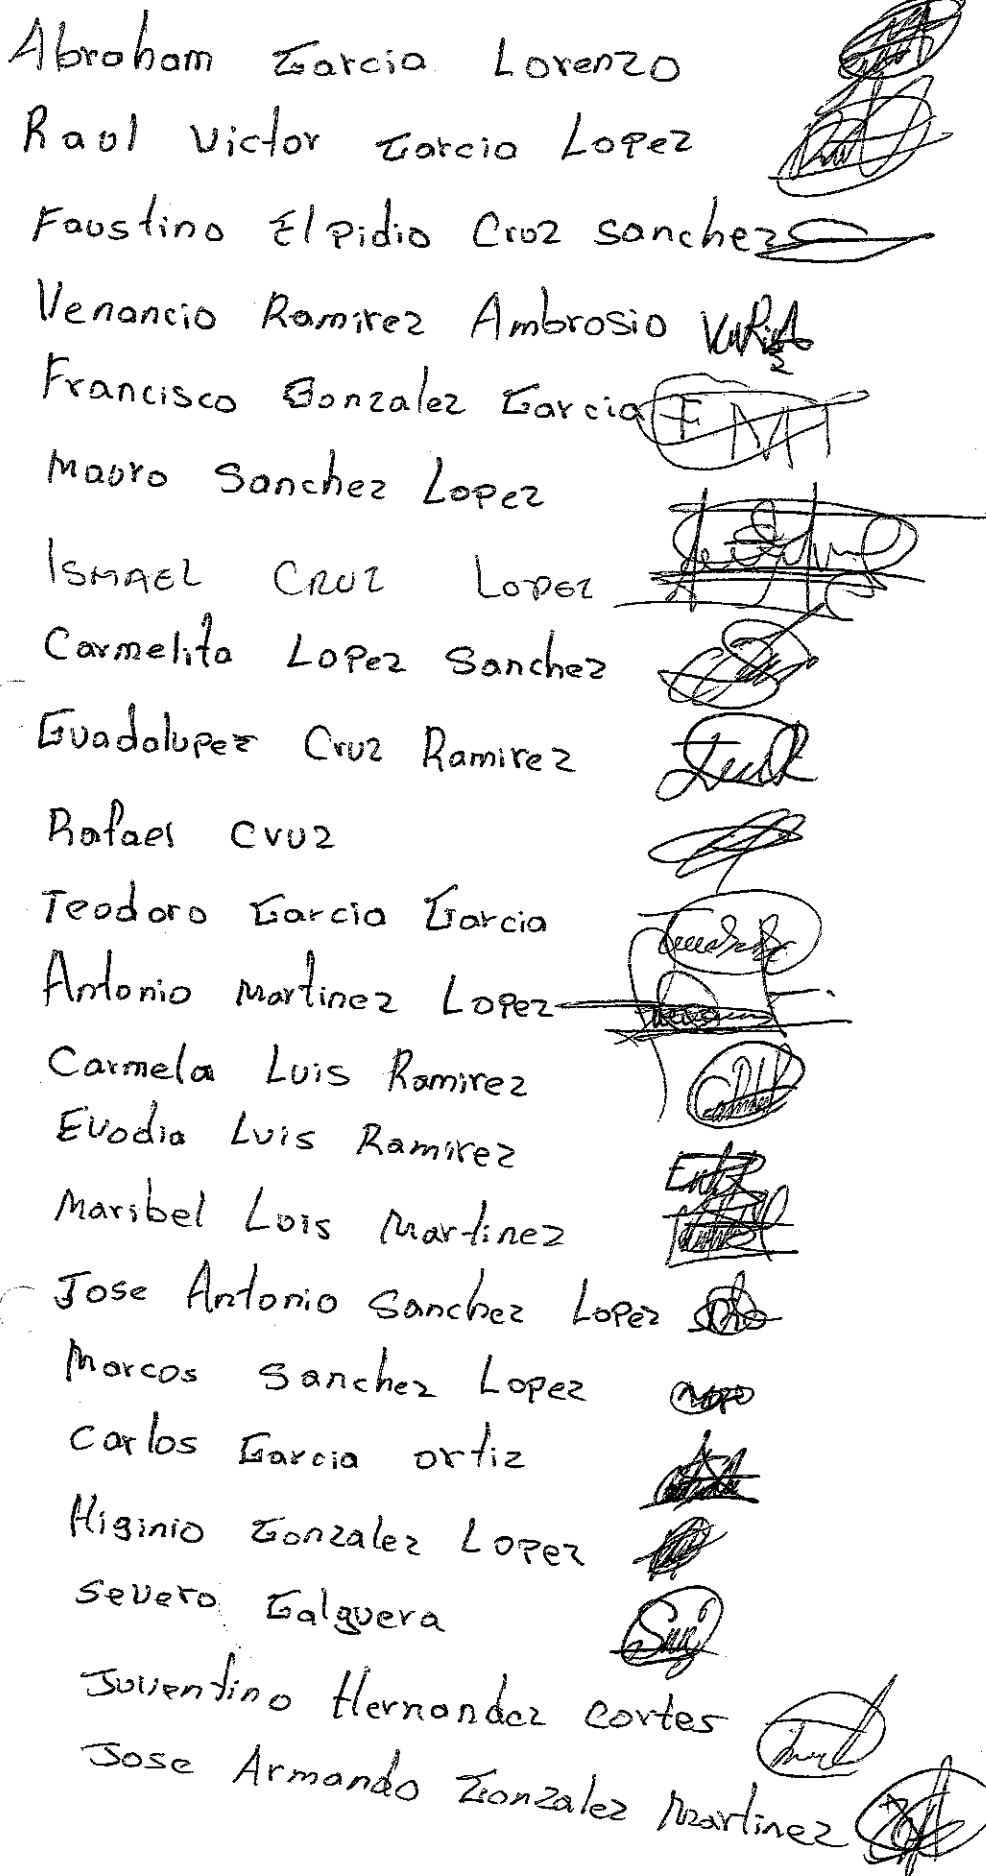 Abraham Garcia Lorenzo
Raul Victor Garcia Lopez
Faustino Elpidio Cruz Sanchez
Venancio Ramirez Ambrosio
Francisco Gonzalez Garcia
Mauro Sanchez Lopez
ISMAEL CRUZ LOPEZ
Carmelita Lopez Sanchez
Guadalupez Cruz Ramirez
Rafael Cruz
Teodoro Garcia Garcia
Antonio Martinez Lopez
Carmela Luis Ramirez
Evodia Luis Ramirez
Maribel Luis Martinez
Jose Antonio Sanchez Lopez
Marcos Sanchez Lopez
Carlos Garcia ortiz
Higinio Gonzalez Lopez
Severo Galguera
Juventino Hernandez Cortes
Jose Armando Gonzalez Martinez